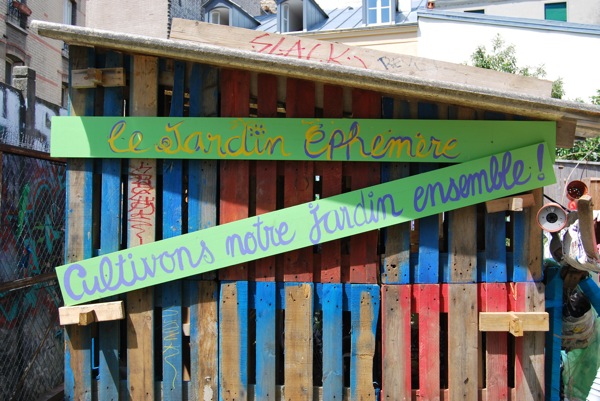 SLACK
Le Jardin Éphémère
Cultivons notre jardin ensemble!